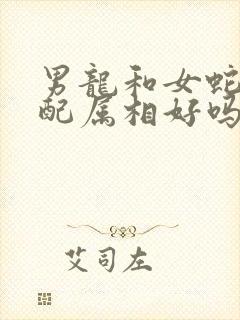 男龍和女蛇
配属相好吗
艾司左